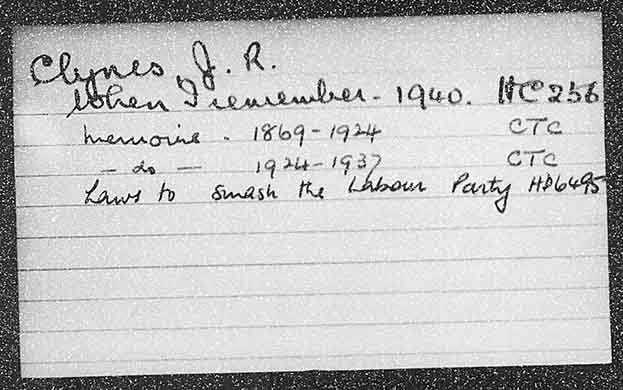 Clynes, J. R.
When I remember - 1940. HC 256
Memoirs - 1869-1924 CTC
- do - 1924-1937 CTC
Laws to smash the Labour Party HD6495